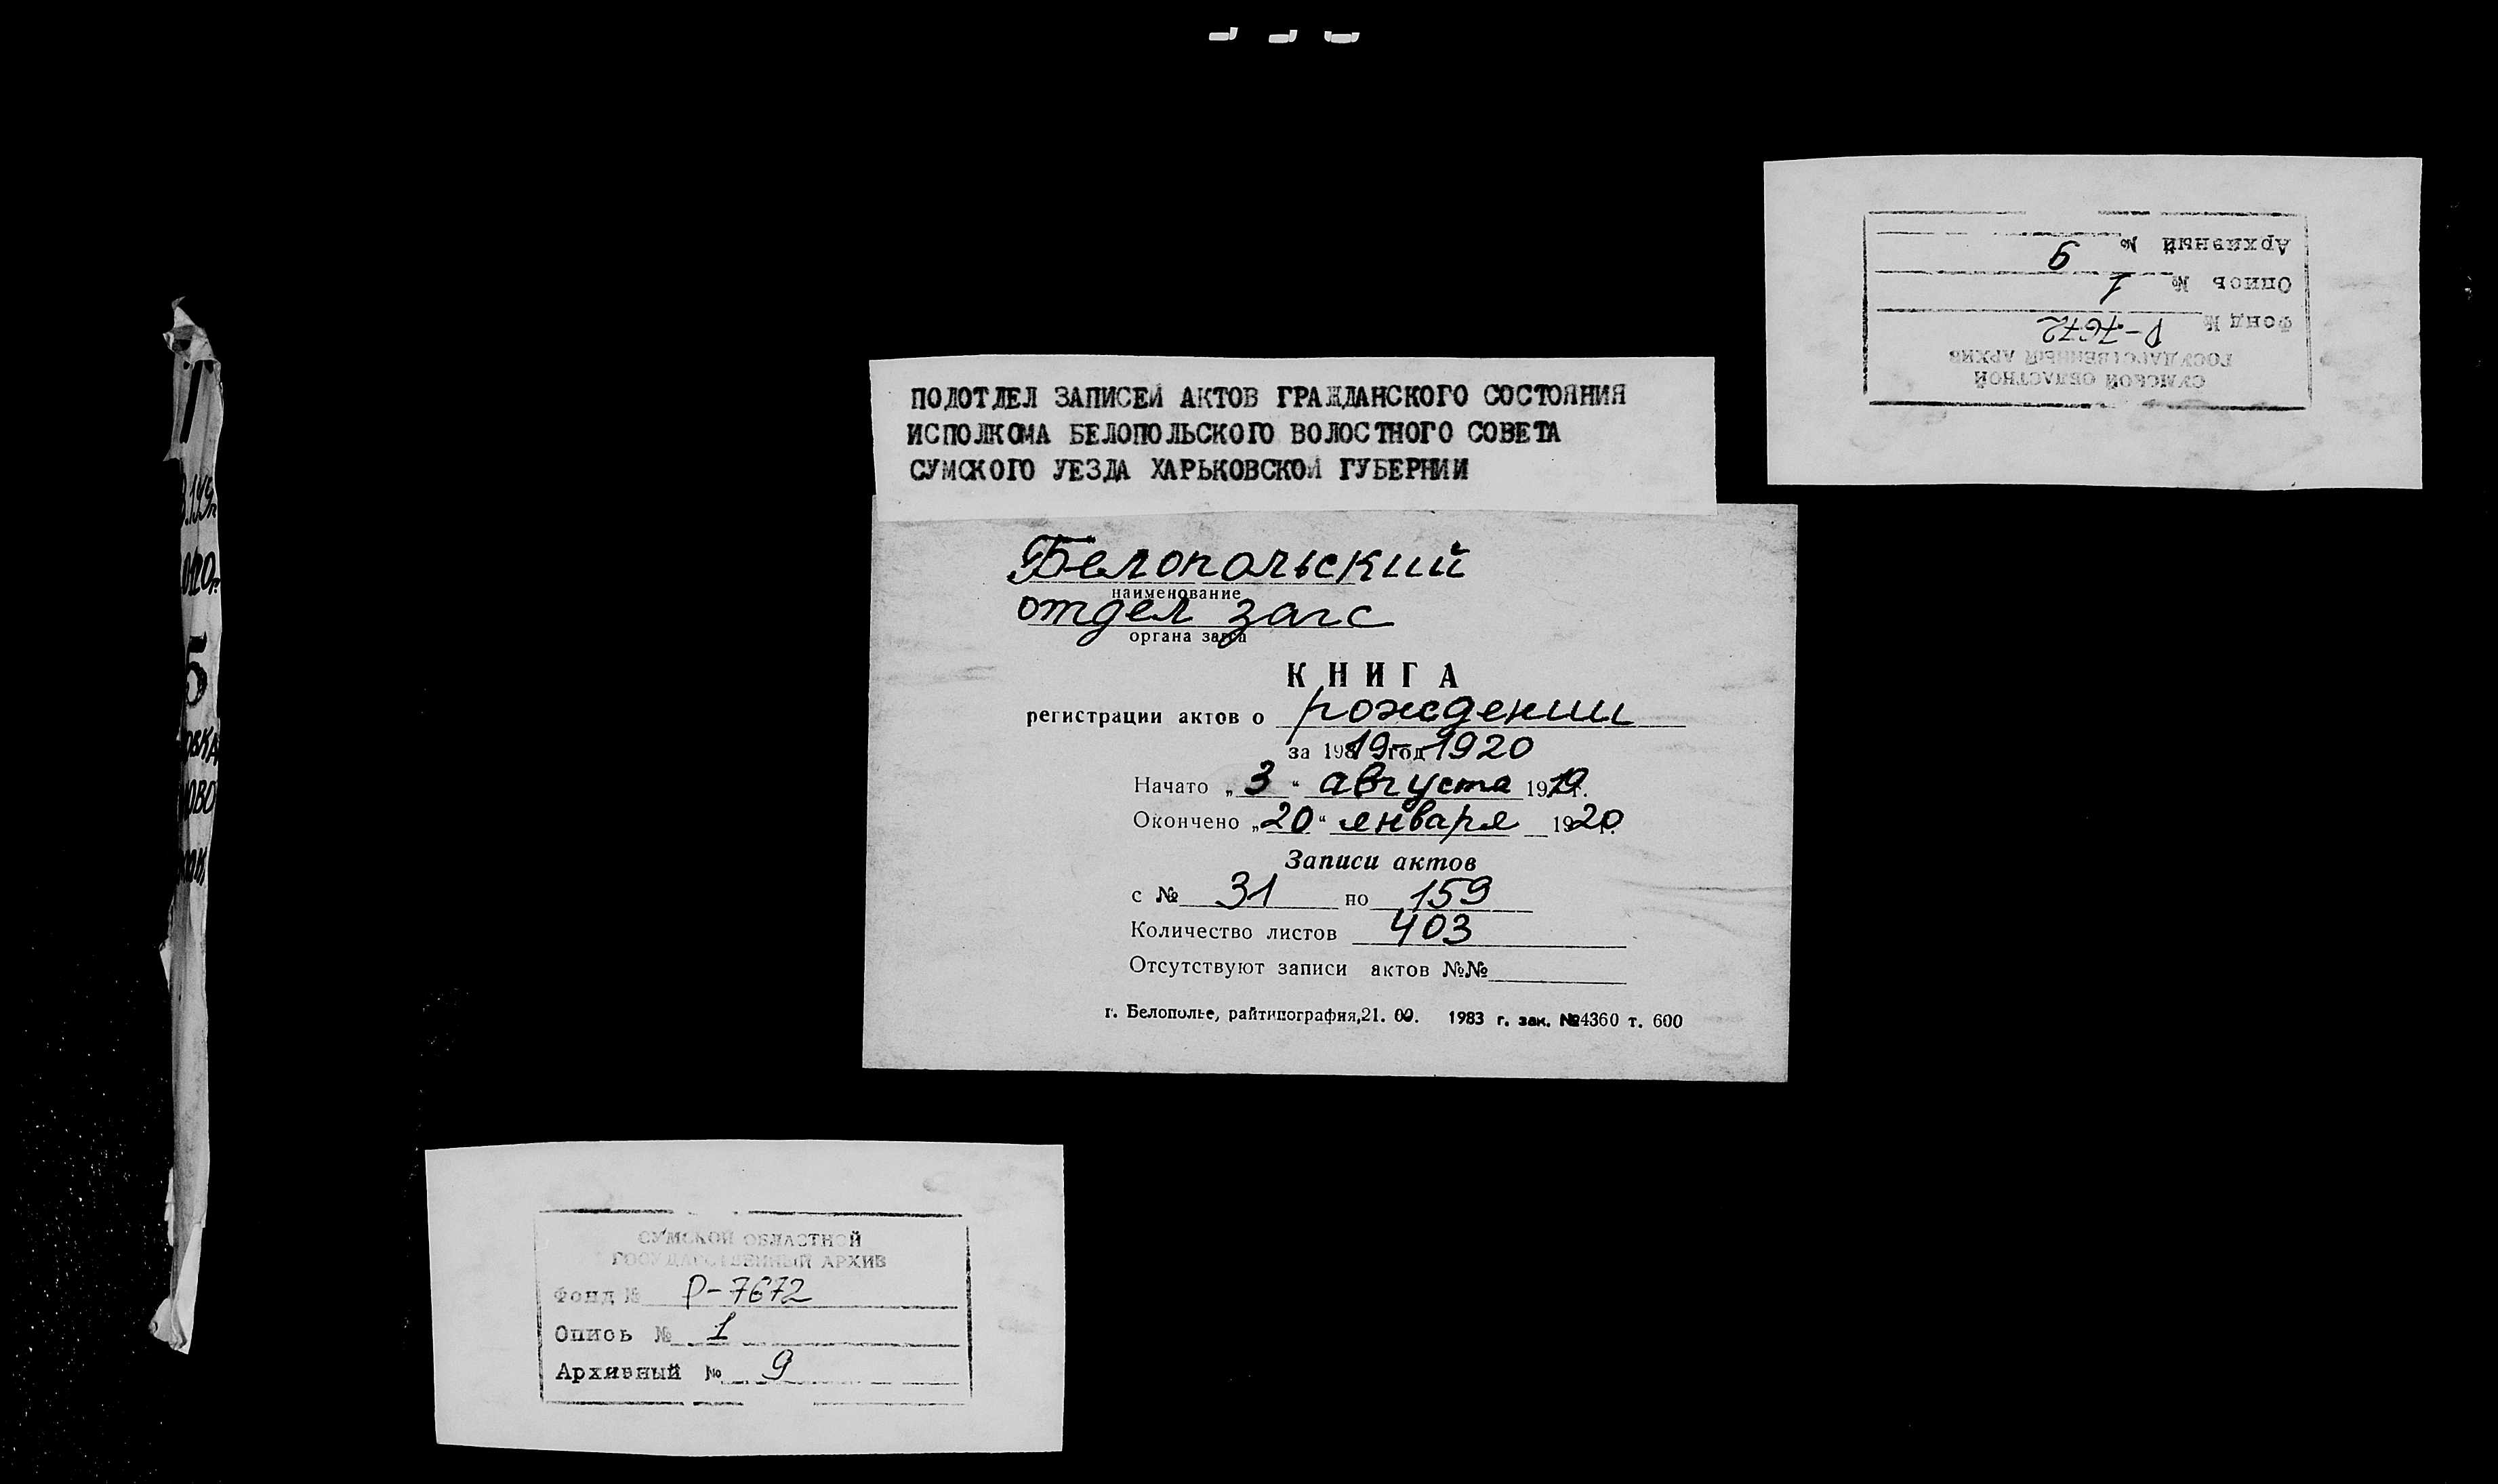 ПОДОТДЕЛ ЗАПИСЕЙ АКТОВ ГРАЖДАНСКОГО СОСТОЯНИЯ
ИСПОЛКОМА БЕЛОПОЛЬСКОГО ВОЛОСТНОГО СОВЕТА
СУМСКОГО УЕЗДА ХАРЬКОВСКОЙ ГУБЕРНИИ
Белопольский
наименование
отдел загс
органа загса
КНИГА
регистрации актов о рождении
за 1919 год - 1920
Начато „3“ августа 1919 г.
Окончено „20“ января 1920 г.
Записи актов
с № 31 по 159
Количество листов 403
Отсутствуют записи актов №№
г. Белополье, райтипография, 21. 09. 1983 г. зак. №4360 т. 600
Архивный № 9
Опись № 1
Фонд № Р-7672
ГОСУДАРСТВЕННЫЙ АРХИВ
СУМСКОЙ ОБЛАСТНОЙ
СУМСКОЙ ОБЛАСТНОЙ
ГОСУДАРСТВЕННЫЙ АРХИВ
Фонд № Р-7672
Опись № 1
Архивный № 9